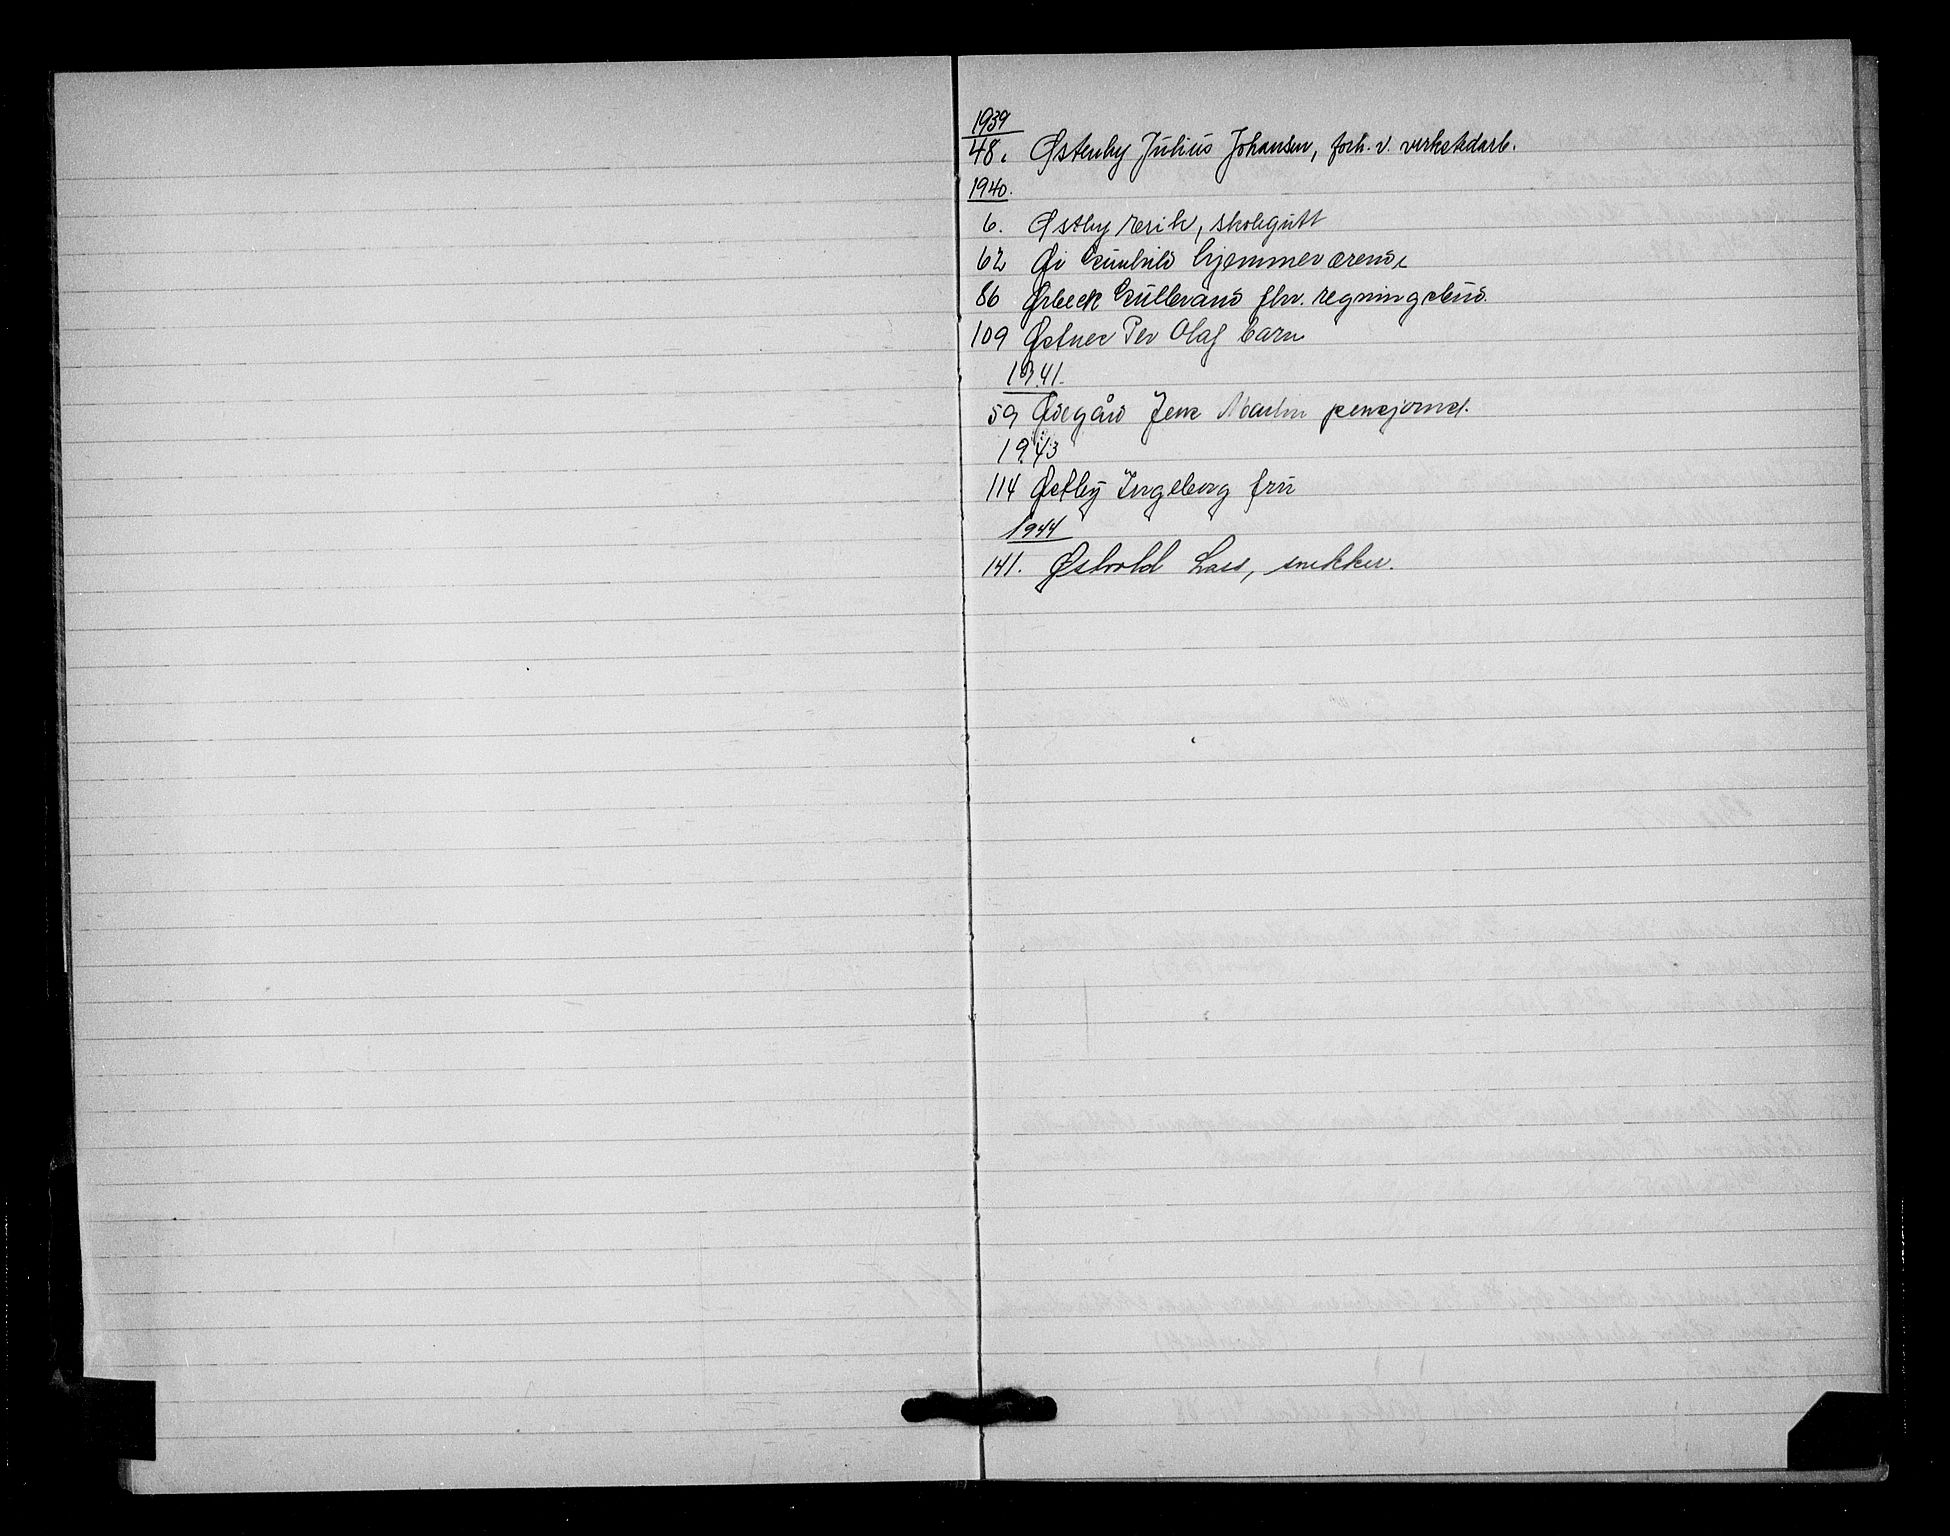 1939
48. Østenby Julius Johansen, forh. v. verkstdarb.
1940.
6. Østby Erik, skolegutt
62 Øi Gunhild hjemmeværende
86 Ørbeck Gulbrand fhv. regningsbud.
109 Østner Per Olaf barn
1941.
59 Ødegård Jens Martin pensjonist.
1943
114 Østby Ingeborg fru
1944
141. Østvold Lars, snekker.